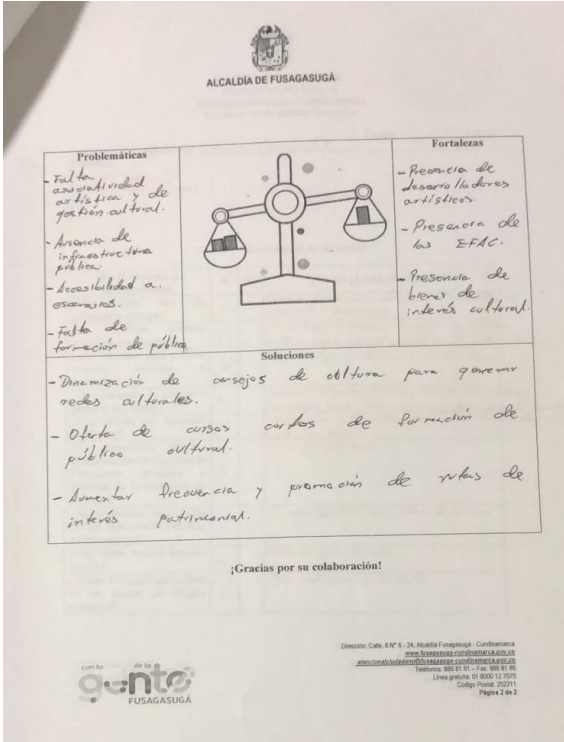 ALCALDÍA DE FUSAGASUGÁ
Problemáticas
- Falta
asociatividad
artística y de
gestión cultural.
- Ausencia de
infraestructura
pública
- Accesibilidad a
escenarios.
- Falta de
formación de público.
Fortalezas
- Presencia de
desarrolladores
artísticos.
- Presencia de
las EFAC.
- Presencia de
bienes de
interés cultural.
Soluciones
- Dinamización de consejos de cultura para generar
redes culturales.
- Oferta de cursos cortos de formación de
público cultural.
- Aumentar frecuencia y promoción de rutas de
interés patrimonial.
¡Gracias por su colaboración!
con la de la
gente
FUSAGASUGÁ
Dirección: Calle. 6 N° 6 - 24, Alcaldía Fusagasugá - Cundinamarca
www.fusagasuga-cundinamarca.gov.co
atencionalciudadano@fusagasuga-cundinamarca.gov.co
Teléfonos: 886 81 81 – Fax: 886 81 86
Línea gratuita: 01 8000 12 7070
Código Postal: 252211
Página 2 de 2